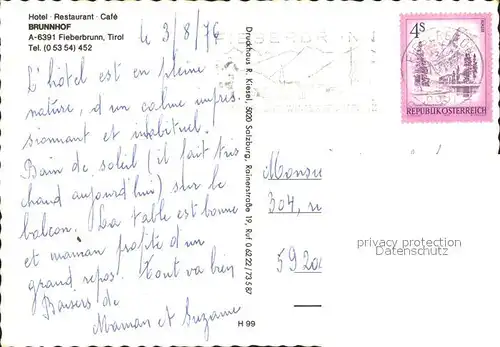 Hotel · Restaurant · Café
BRUNNHOF
A-6391 Fieberbrunn, Tirol
Tel. (0 53 54) 452
le 3/8/76
L'hôtel est en pleine
nature, d'un calme impres
sionnant et inhabituel.
Bain de soleil (il fait très
chaud aujourd'hui) sur le
balcon. La table est bonne
et maman profite d'un
grand repos. Tout va bien
Baisers de
Maman et Suzanne
H 99
Druckhaus R. Kiesel, 5020 Salzburg, Rainerstraße 19, Ruf 0 62 22 / 73 5 87
4S
REPUBLIK ÖSTERREICH
Monsieu
304, r
592
privacy protection
Datenschutz